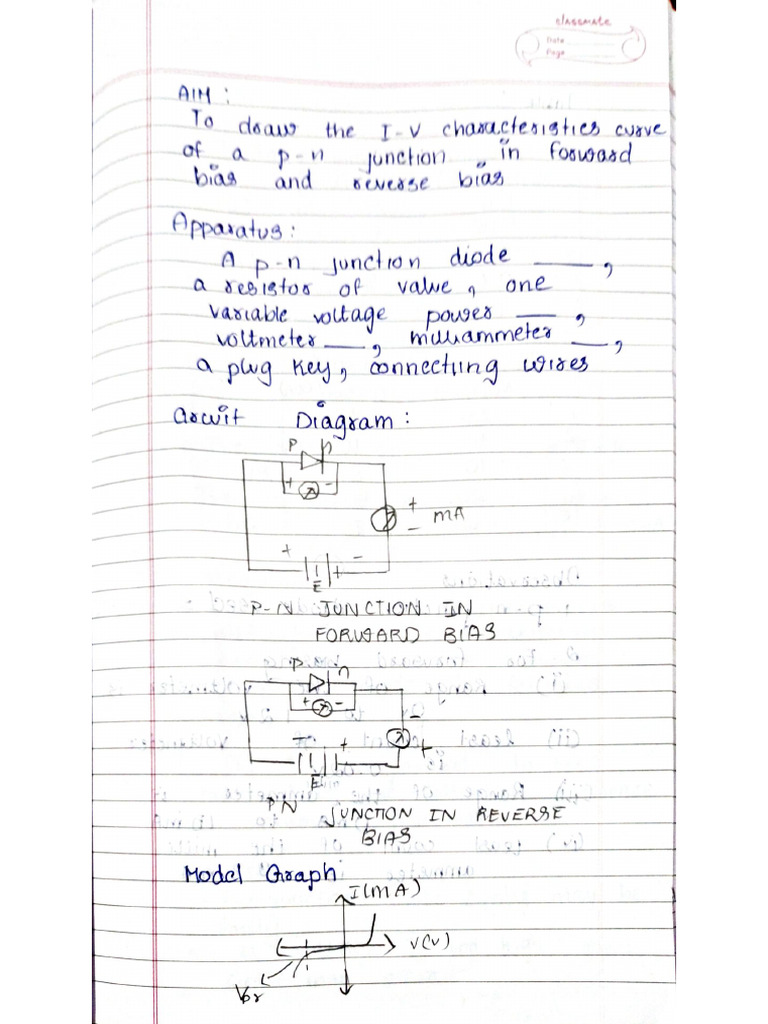 classmate
Date
Page
AIM :
To draw the I-V characteristics curve
of a p-n junction in forward
bias and reverse bias
Apparatus :
A p-n junction diode ___ ,
a resistor of value, one
variable voltage power ___ ,
voltmeter ___ , milliammeter ___ ,
a plug key, connecting wires
Circuit Diagram :
P n
+ -
+
- mA
+ -
+
E
P-N JUNCTION IN
FORWARD BIAS
P n
+ -
-
+
- +
E
PN JUNCTION IN REVERSE
BIAS
Model Graph
I(mA)
V(V)
Vbr